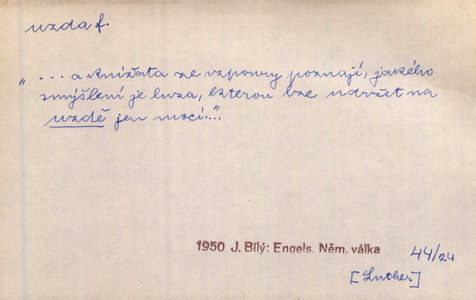 uzda f.
„... a knížata ze vzpoury poznají, jakého
smýšlení je luza, kterou lze udržet na
uzdě jen mocí..."
1950 J. Bílý: Engels. Něm. válka
44/24
[Luther]